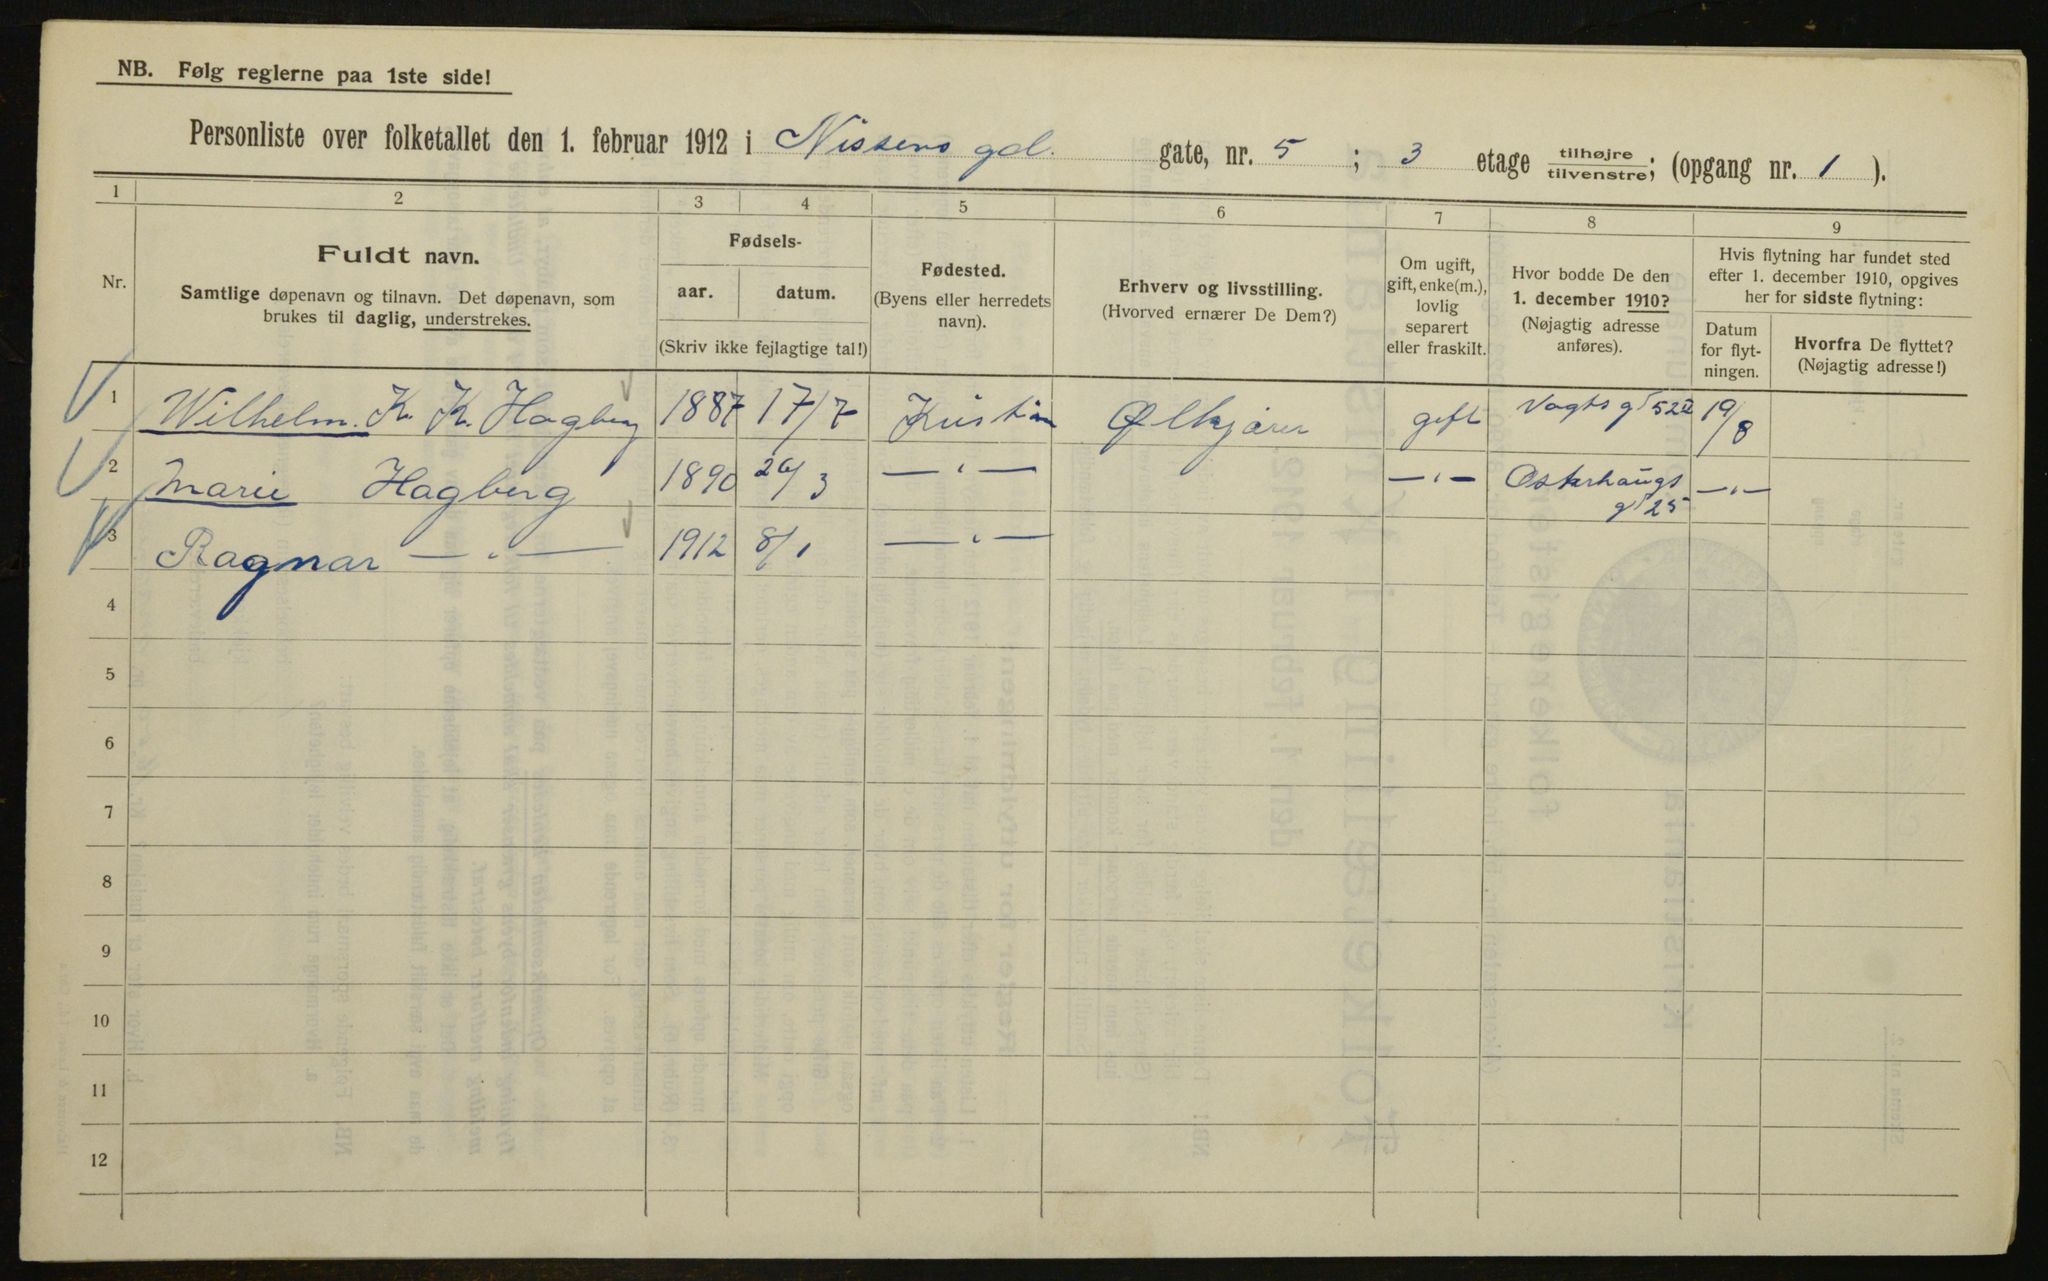 NB. Følg reglerne paa 1ste side!
Personliste over folketallet den 1. februar 1912 i Nissens gd. gate, nr. 5 ; 3 etage tilhøjre tilvenstre; (opgang nr. 1 ).
1 2 3 4 5 6 7 8 9
Nr.
Fuldt navn.
Samtlige døpenavn og tilnavn. Det døpenavn, som
brukes til daglig, understrekes.
Fødsels-
aar. datum.
(Skriv ikke fejlagtige tal!)
Fødested.
(Byens eller herredets
navn).
Erhverv og livsstilling.
(Hvorved ernærer De Dem?)
Om ugift,
gift, enke(m.),
lovlig
separert
eller fraskilt.
Hvor bodde De den
1. december 1910?
(Nøjagtig adresse
anføres).
Hvis flytning har fundet sted
efter 1. december 1910, opgives
her for sidste flytning:
Datum
for flyt-
ningen.
Hvorfra De flyttet?
(Nøjagtig adresse!)
1 Wilhelm. K. K. Hagberg 1887 17/7 Kristian Ølkjører gift Vogts gt 52 II 19/8
2 Marie Hagberg 1890 26/3 —"— —"— Osterhaugs —"—
gt 25
3 Ragnar —"— 1912 8/1 —"—
4
5
6
7
8
9
10
11
12